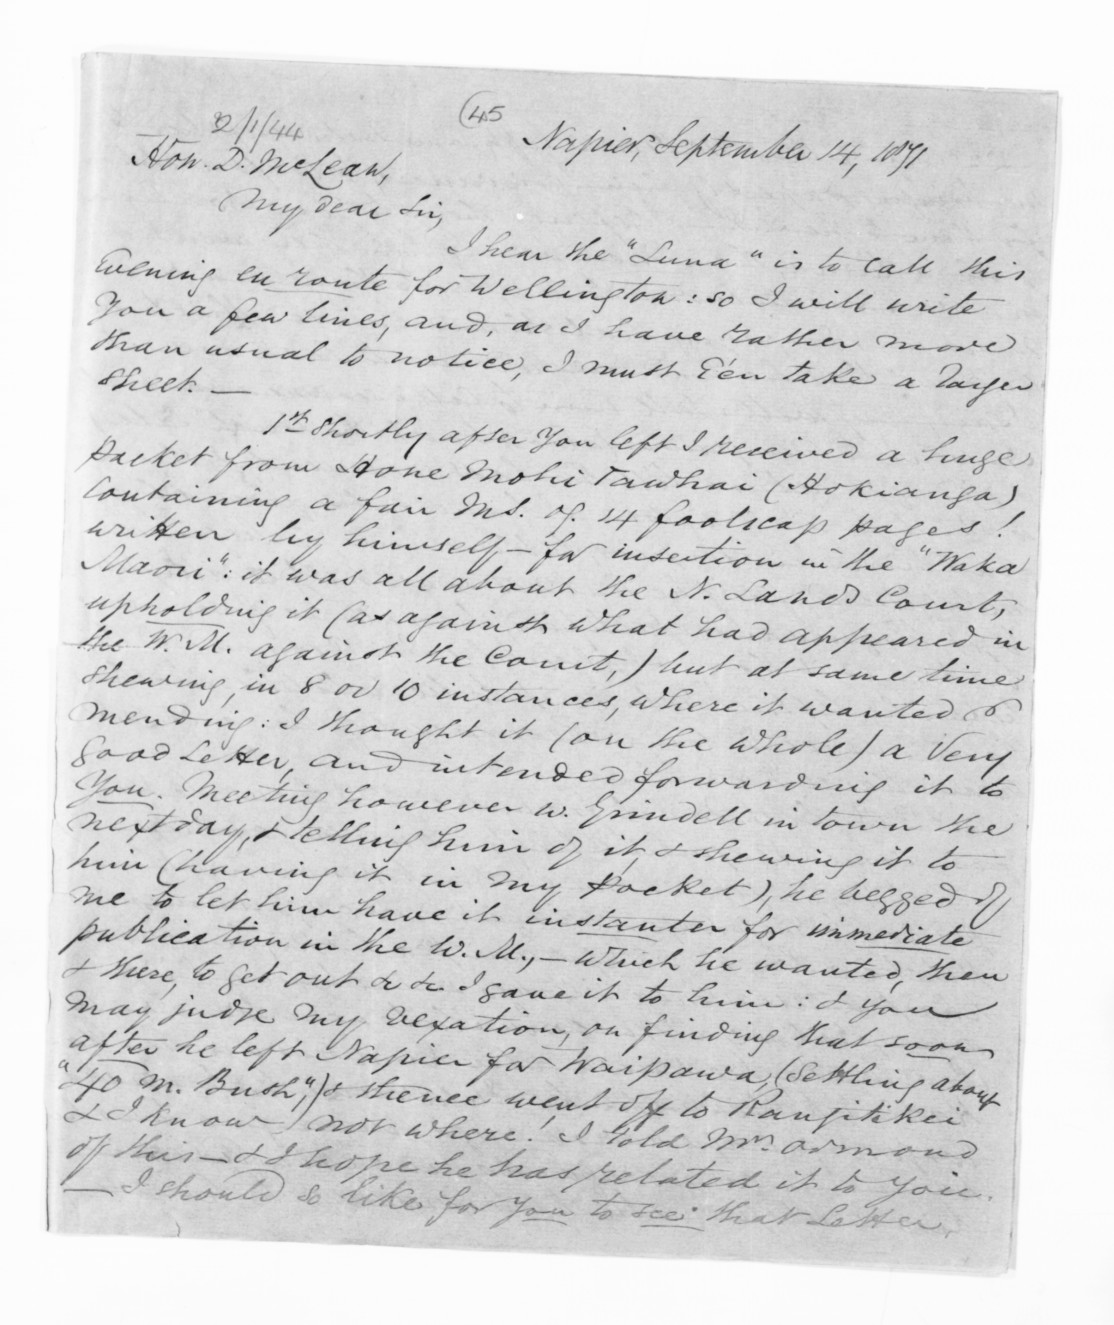 (45
2/1/44
Napier, September 14, 1871
Hon. D. McLean,
My dear Sir,
I hear the "Luna" is to call this
Evening en route for Wellington: so I will write
You a few lines, and, as I have rather more
than usual to notice, I must E'en take a larger
sheet. —
1st Shortly after You left I received a huge
packet from Hone Mohi Tawhai (Hokianga)
containing a fair MS. of 14 foolscap pages!
written by himself — for insertion in the "Waka
Maori": it was all about the N. Lands Court,
upholding it (as against what had appeared in
the W. M. against the Court,) but at same time
shewing, in 8 or 10 instances, where it wanted
mending: I thought it (on the whole) a Very
good Letter, and intended forwarding it to
You. Meeting however w. Grindell in town the
next day, & telling him of it, & shewing it to
him (having it in my Pocket), he begged of
me to let him have it instanter for immediate
publication in the W. M., — which he wanted, then
& there, to get out &c &c I gave it to him: & you
may judge my vexation, on finding that soon
after he left Napier for Waipawa, (Settling about
"40 m. Bush",) & thence went off to Rangitikei
& I know not where! I told Mr. Ormond
of this — & I hope he has related it to You.
— I should so like for You to see that Letter.